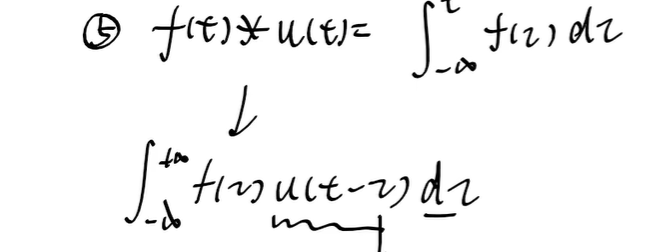 ⑤ f(t)*u(t)= ∫_{-∞}^{t} f(τ)dτ
↓
∫_{-∞}^{+∞} f(τ)u(t-τ)dτ